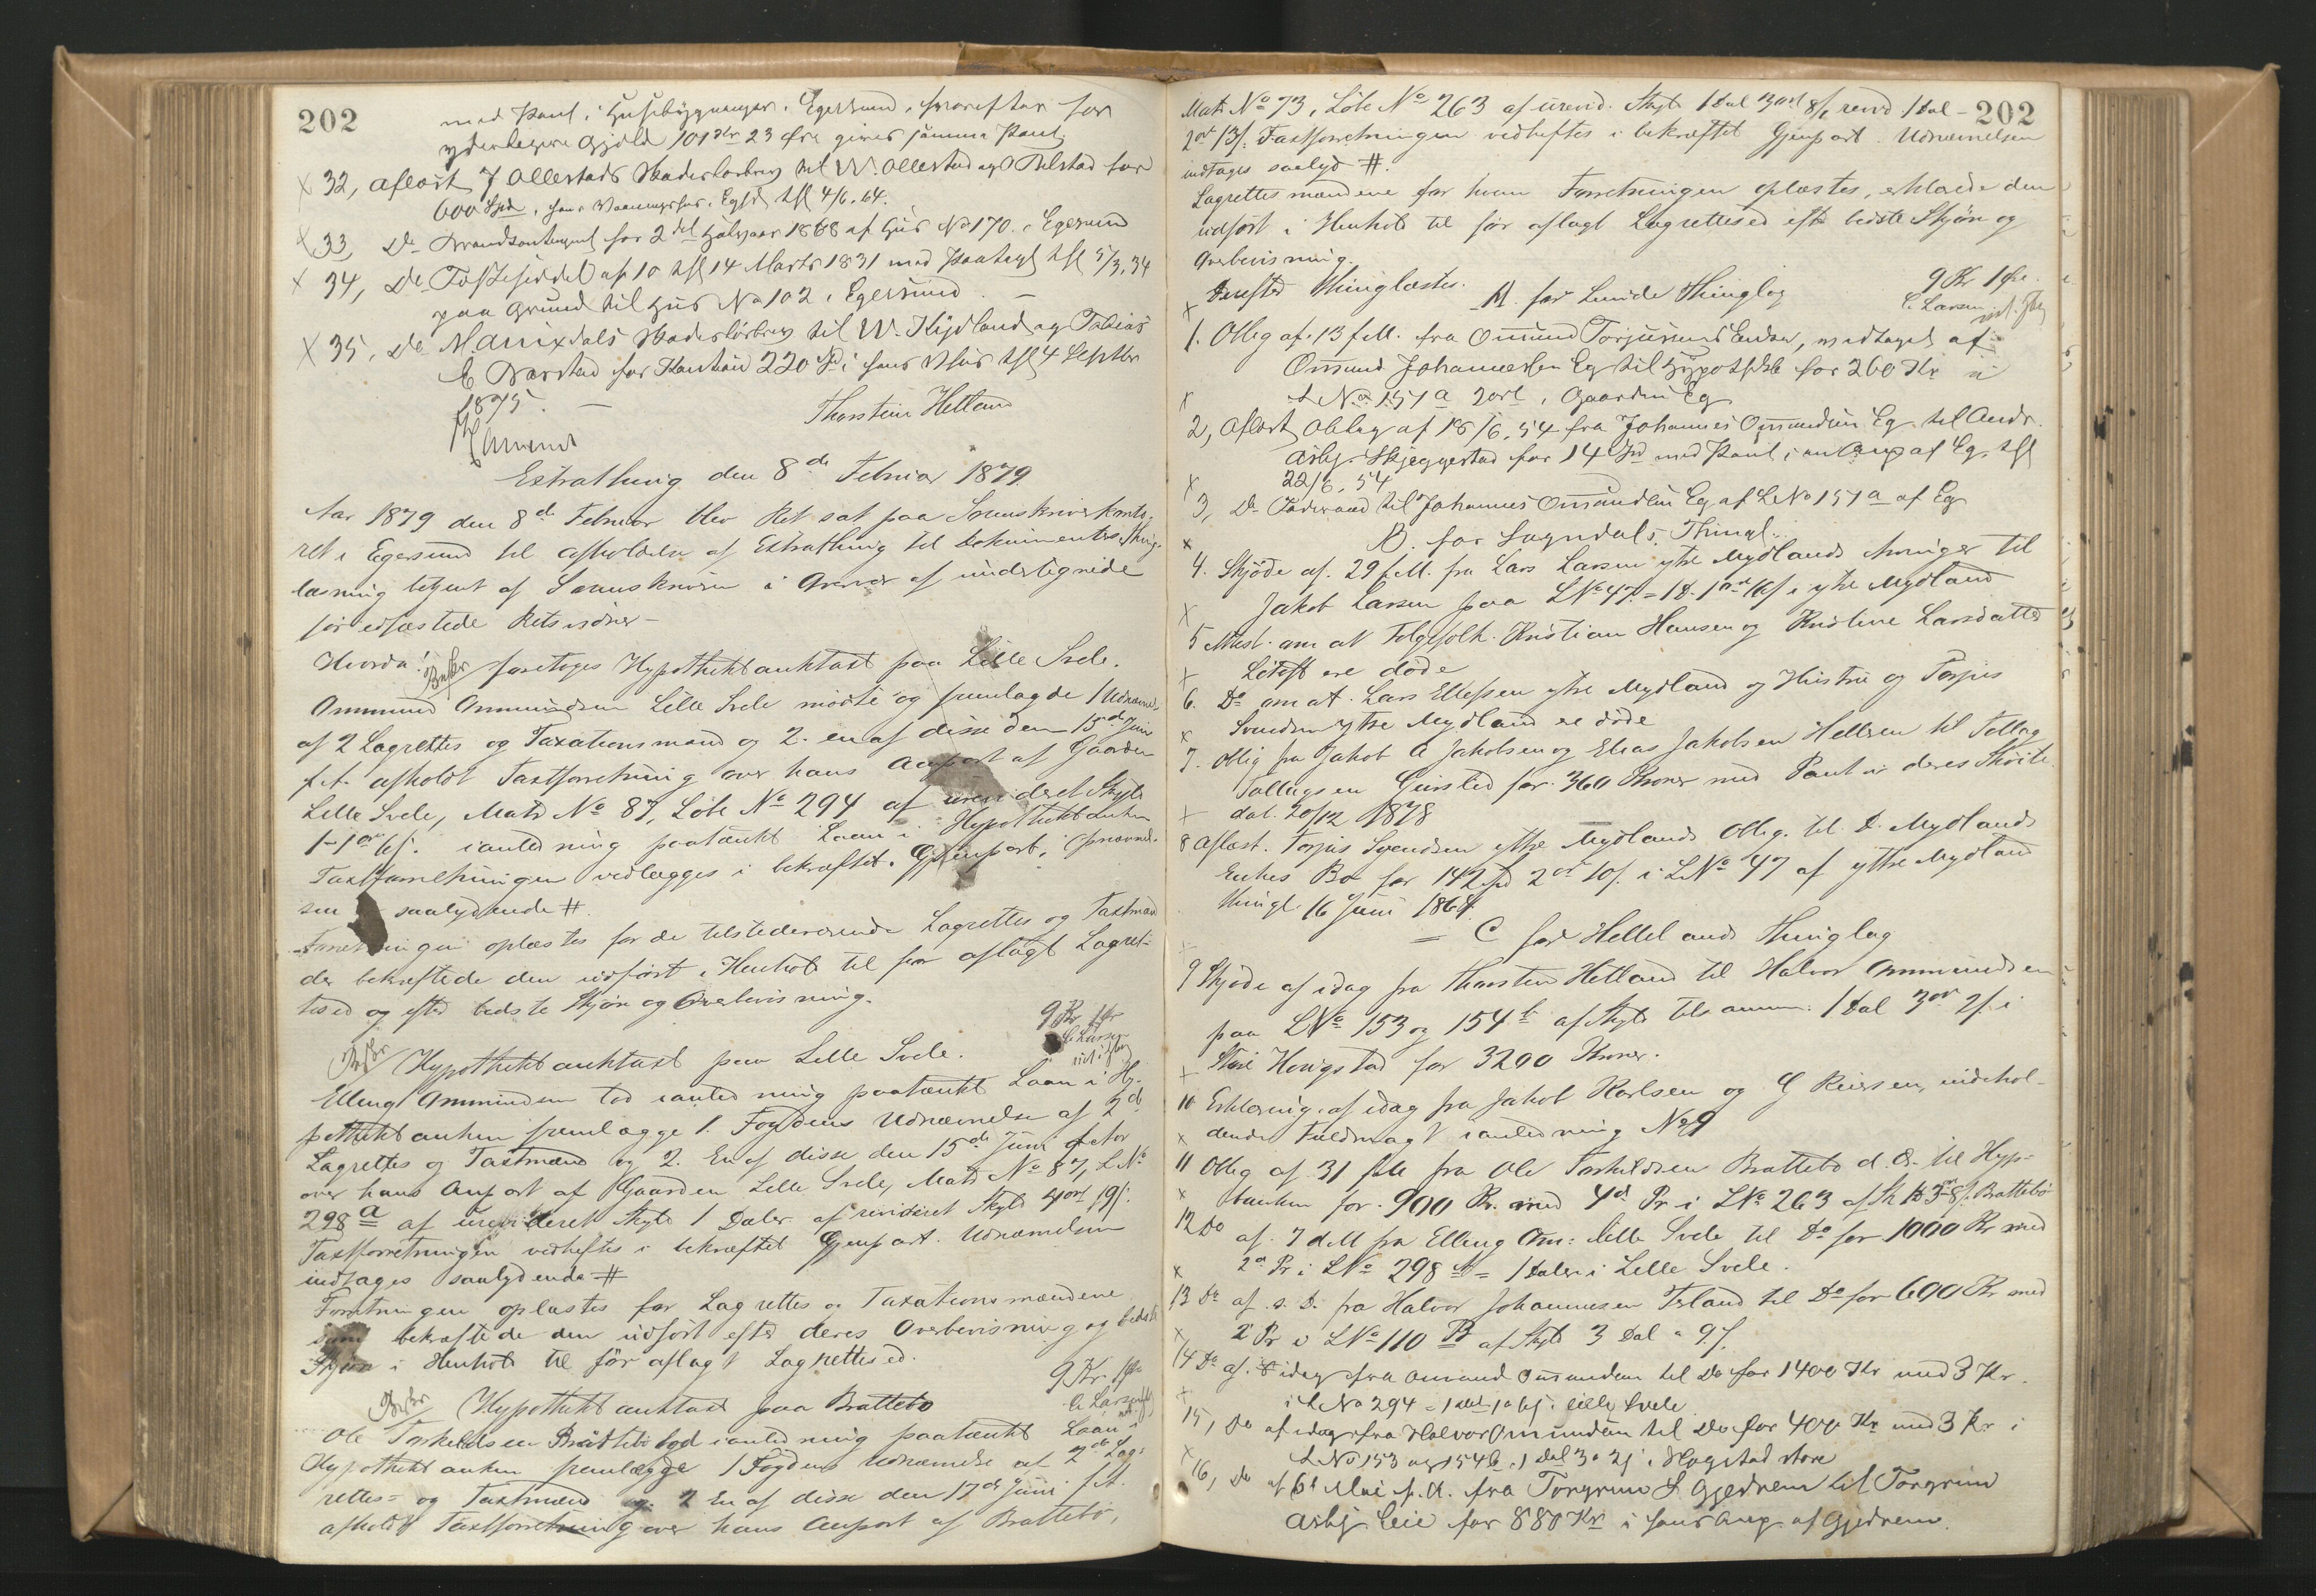 202
med Pant i Huusebygninger i Egersund, hvorefter for
yderligere Gjæld 101 Kr 23 Øre gives samme Pant
32, Aflæst J Ollestads Skadesløsbrev til W. Ollestad og Telstad for
600 Spd, i hans Vaaningshus i Egsd thl 4/6. 64.
33, Do Brandkontingent for 2det Halvaar 1868 af Huus No 170 i Egersund
34, Do Festeseddel af 10 thl 14 Marts 1831 med Paategn thl 5/3. 34
paa Grund til Huus No 102 i Egersund
35, Do M. Skadesløsbrev til W. Kydland og Tobias
E for Kaution 220 Spd i hans Huus thl 4 Septbr
1875. Thorstein Hetland
Extrathing den 8de Februar 1879
Aar 1879 den 8de Februar blev Ret sat paa Sorenskriverkonto-
ret i Egersund til Afholdelse af Extrathing til Dokumenters Thing-
læsning betjent af Sorenskriveren i Overvær af undertegnede
før edfæstede Retsvidner –
Hvorda!
foretoges Hypothekbanktaxt paa Lille Svele.
Ommund Ommundsen Lille Svele mødte og fremlagde 1 Udnævnelse
af 2 Lagrettes og Taxationsmænd og 2. en af disse den 15de Juni
f. A. afholdt Taxtforretning over hans Anpart af Gaarden
Lille Svele, Matr No 87, Løbe No 294 af urevideret Skyld
1 – 1 ort 6 s. i anledning paatænkt Laan i Hypothekbanken
Taxtforretningen vedlægges i bekræftet Gjenpart.
saalydende #.
Forretningen oplæstes for de tilstedeværende Lagrettes og Taxtmænd
der bekræftede den udført i Henhold til før aflagt Lagret-
tesed og efter bedste Skjøn og Overbevisning.
9 Kr
C. Larsen
Hypothekbanktaxt paa Lille Svele.
Elling Ommundsen lod i anledning paatænkt Laan i Hy-
pothekbanken fremlægge 1. Fogdens Udnævnelse af 2de
Lagrettes og Taxtmænd og 2. En af disse den 15de Juni f. Aar
over hans Anpart af Gaarden Lille Svele, Matr No 87, L No
298 a af urevideret Skyld 1 Daler af revideret Skyld 4 ort 19 s.
Taxtforretningen vedheftes i bekræftet Gjenpart. Udnævnelsen
indtages saalydende #
Forretningen oplæstes for Lagrettes og Taxationsmændene
som bekræftede den udført efter deres Overbevisning og bedste
Skjøn i Henhold til før aflagt Lagrettesed.
9 Kr
C. Larsen
Hypothekbanktaxt paa Brattebø
Ole Torkeldsen Brattebø lod i anledning paatænkt Laan i
Hypothekbanken fremlægge 1 Fogdens Udnævnelse af 2de Lag-
rettes- og Taxtmænd og 2 En af disse den 17de Juni f. A.
afholdt Taxtforretning over hans Anpart af Brattebø,
202
Matr No 73, Løbe No 263 af urevid. Skyld 1 Dal 3 ort 8 s, revid 1 Dal –
2 ort 13 s. Taxtforretningen vedheftes i bekræftet Gjenpart. Udnævnelsen
indtages saalyd #.
Lagrettesmændene for hvem Forretningen oplæstes, erklærede den
udført i Henhold til før aflagt Lagrettesed efter bedste Skjøn og
Overbevisning.
9 Kr 1 Øre
C. Larsen
Derefter Thinglæstes.
A. for Lunde Thinglag
1. Oblig af 13 f. M. fra Omund Torjusens Enke, vedtaget af
Omund Johannessen Eg til Hypothb for 260 Kr i
L No 151 a 2 ort, Gaarden Eg
2, Aflæst Oblig af 18/6. 54 fra Johannes Omundsen Eg til Andr.
Asbj. Skjeggestad for 14 Spd med Pant i en Anp af Eg. thl
22/6. 54
3, Do Føderaad til Johannes Omundsen Eg af L No 151 a af Eg
B. for Sogndals Thingl.
4. Skjøde af 29 f. M. fra Lars Larsen ytre Mydlands Arvinger til
Jakob Larsen paa L No 47 = 1 d. 1 ort 16 s i ytre Mydland
5 Attest. om at Folgefolk. Kristian Hansen og Kristine Larsdatter
Løtoft ere døde
6. Do om at Lars Ellefsen ytre Mydland og Hustru og Torjus
Svendsen Ytre Mydland ere døde
7. Oblig fra Jakob A Jakobsen og Elias Jakobsen Hellren til Tollag
Tollagsen Guisted for 360 Kroner med Pant i deres Skøite
dat. 20/12 1878
8 Aflæst. Torjus Svendsen ytre Mydlands Oblig. til D. Mydlands
Enkes Bo for 142 Spd 2 ort 10 s. i L No 47 af ytre Mydland
thingl. 16 Juni 1864.
= C for Hellelands Thinglag
9 Skjøde af idag fra Thorsten Hetland til Halvor Ommundsen
paa L No 153 og 154 b af Skyld tilsammen 1 Dal 3 ort 2 s. i
Store Hovigstad for 3200 Kroner.
10 Erklæring af idag fra Jakob Karlsen og G Reiersen, indehol-
dende Fuldmagt i anledning No 9
11 Oblig af 31 f. M. fra Ole Torkeldsen Brattebø d. Æ. til Hyp-
banken for 900 Kr. med 4de Pr i L No 263 af Sk 1 d 3 ort 8 s. Brattebø
12 Do af 7 d. M fra Elling Om: lille Svele til Do for 1000 Kr med
2 d Pr i L No 298 a = 1 Daler i Lille Svele.
13 Do af s. D. fra Halvor Johannesen Tesland til Do for 600 Kr med
2 Pr i L No 110 B af Skyld 3 Dal " 9 s.
14 Do af idag fra Omund Omundsen til Do for 1400 Kr med 3 Pr.
i L No 294 = 1 dal 1 o 6 s i lille Svele
15, Do af idag fra Halvor Omundsen til Do for 400 Kr med 3 Pr i
L No 153 og 154 b. 1 Dal 3 o 2 s i Hogstad store
16, Do af 6te Mai f. A. fra Torgrim S. Gjedrem til Torgrim
Asbj. Eeie for 880 Kr i hans Anp. af Gjedrem.